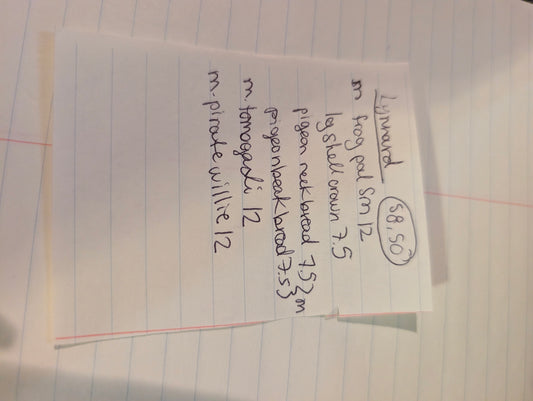 Lynnard 58.50
m frog pal sm 12
lg shell crown 7.5
pigeon neck bread 7.5 } m
pigeon peak bread 7.5 }
m. tomogadi 12
m. pirate willie 12